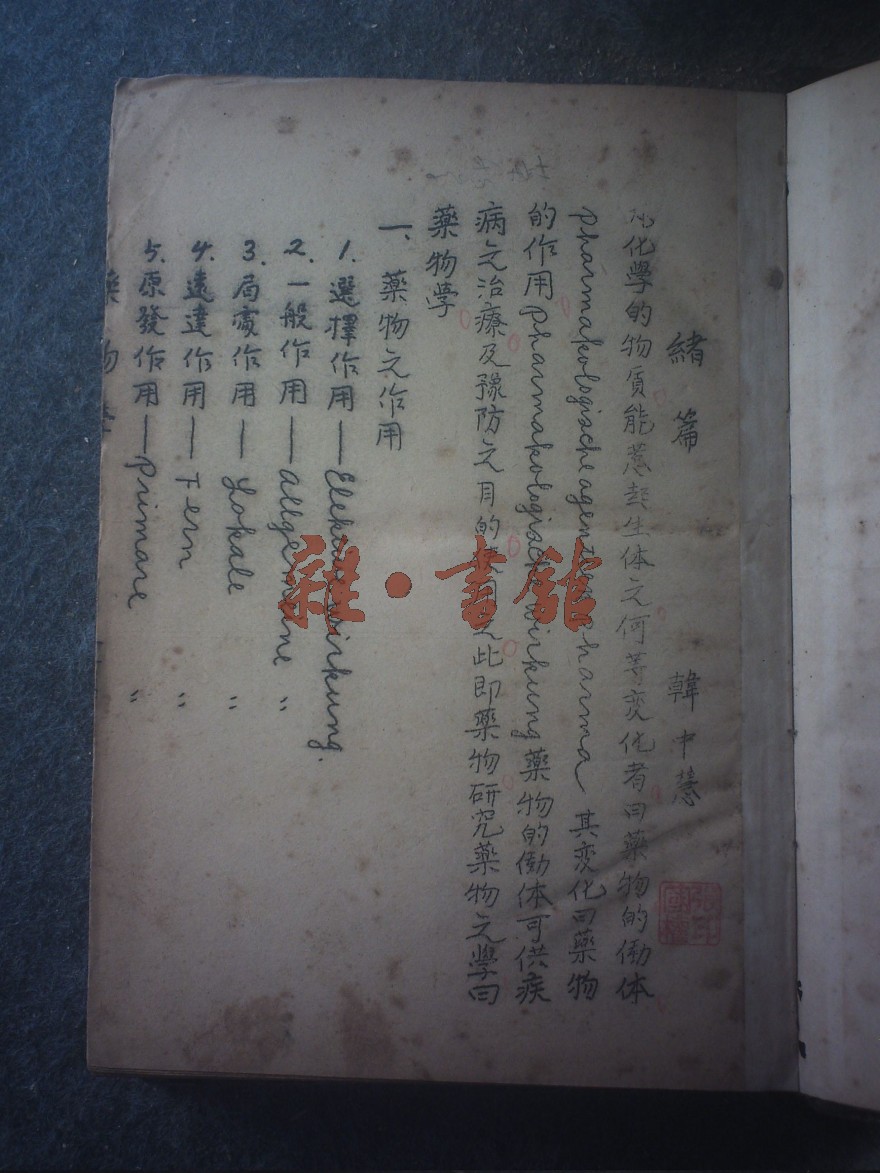 緒篇 韓中慧
化學的物質能惹起生体之何等変化者曰藥物的働体
pharmakologische agentien pharma 其変化曰藥物
的作用 pharmakologische wirkung 藥物的働体可供疾
病之治療及豫防之目的使用之此即藥物研究藥物之學曰
藥物學
一、藥物之作用
1. 選擇作用——Elektive wirkung.
2. 一般作用——allgemeine 〃
3. 局處作用——Lokale 〃
4. 遠達作用——Fern 〃
5. 原發作用——Primare 〃
藥物
雜·書館